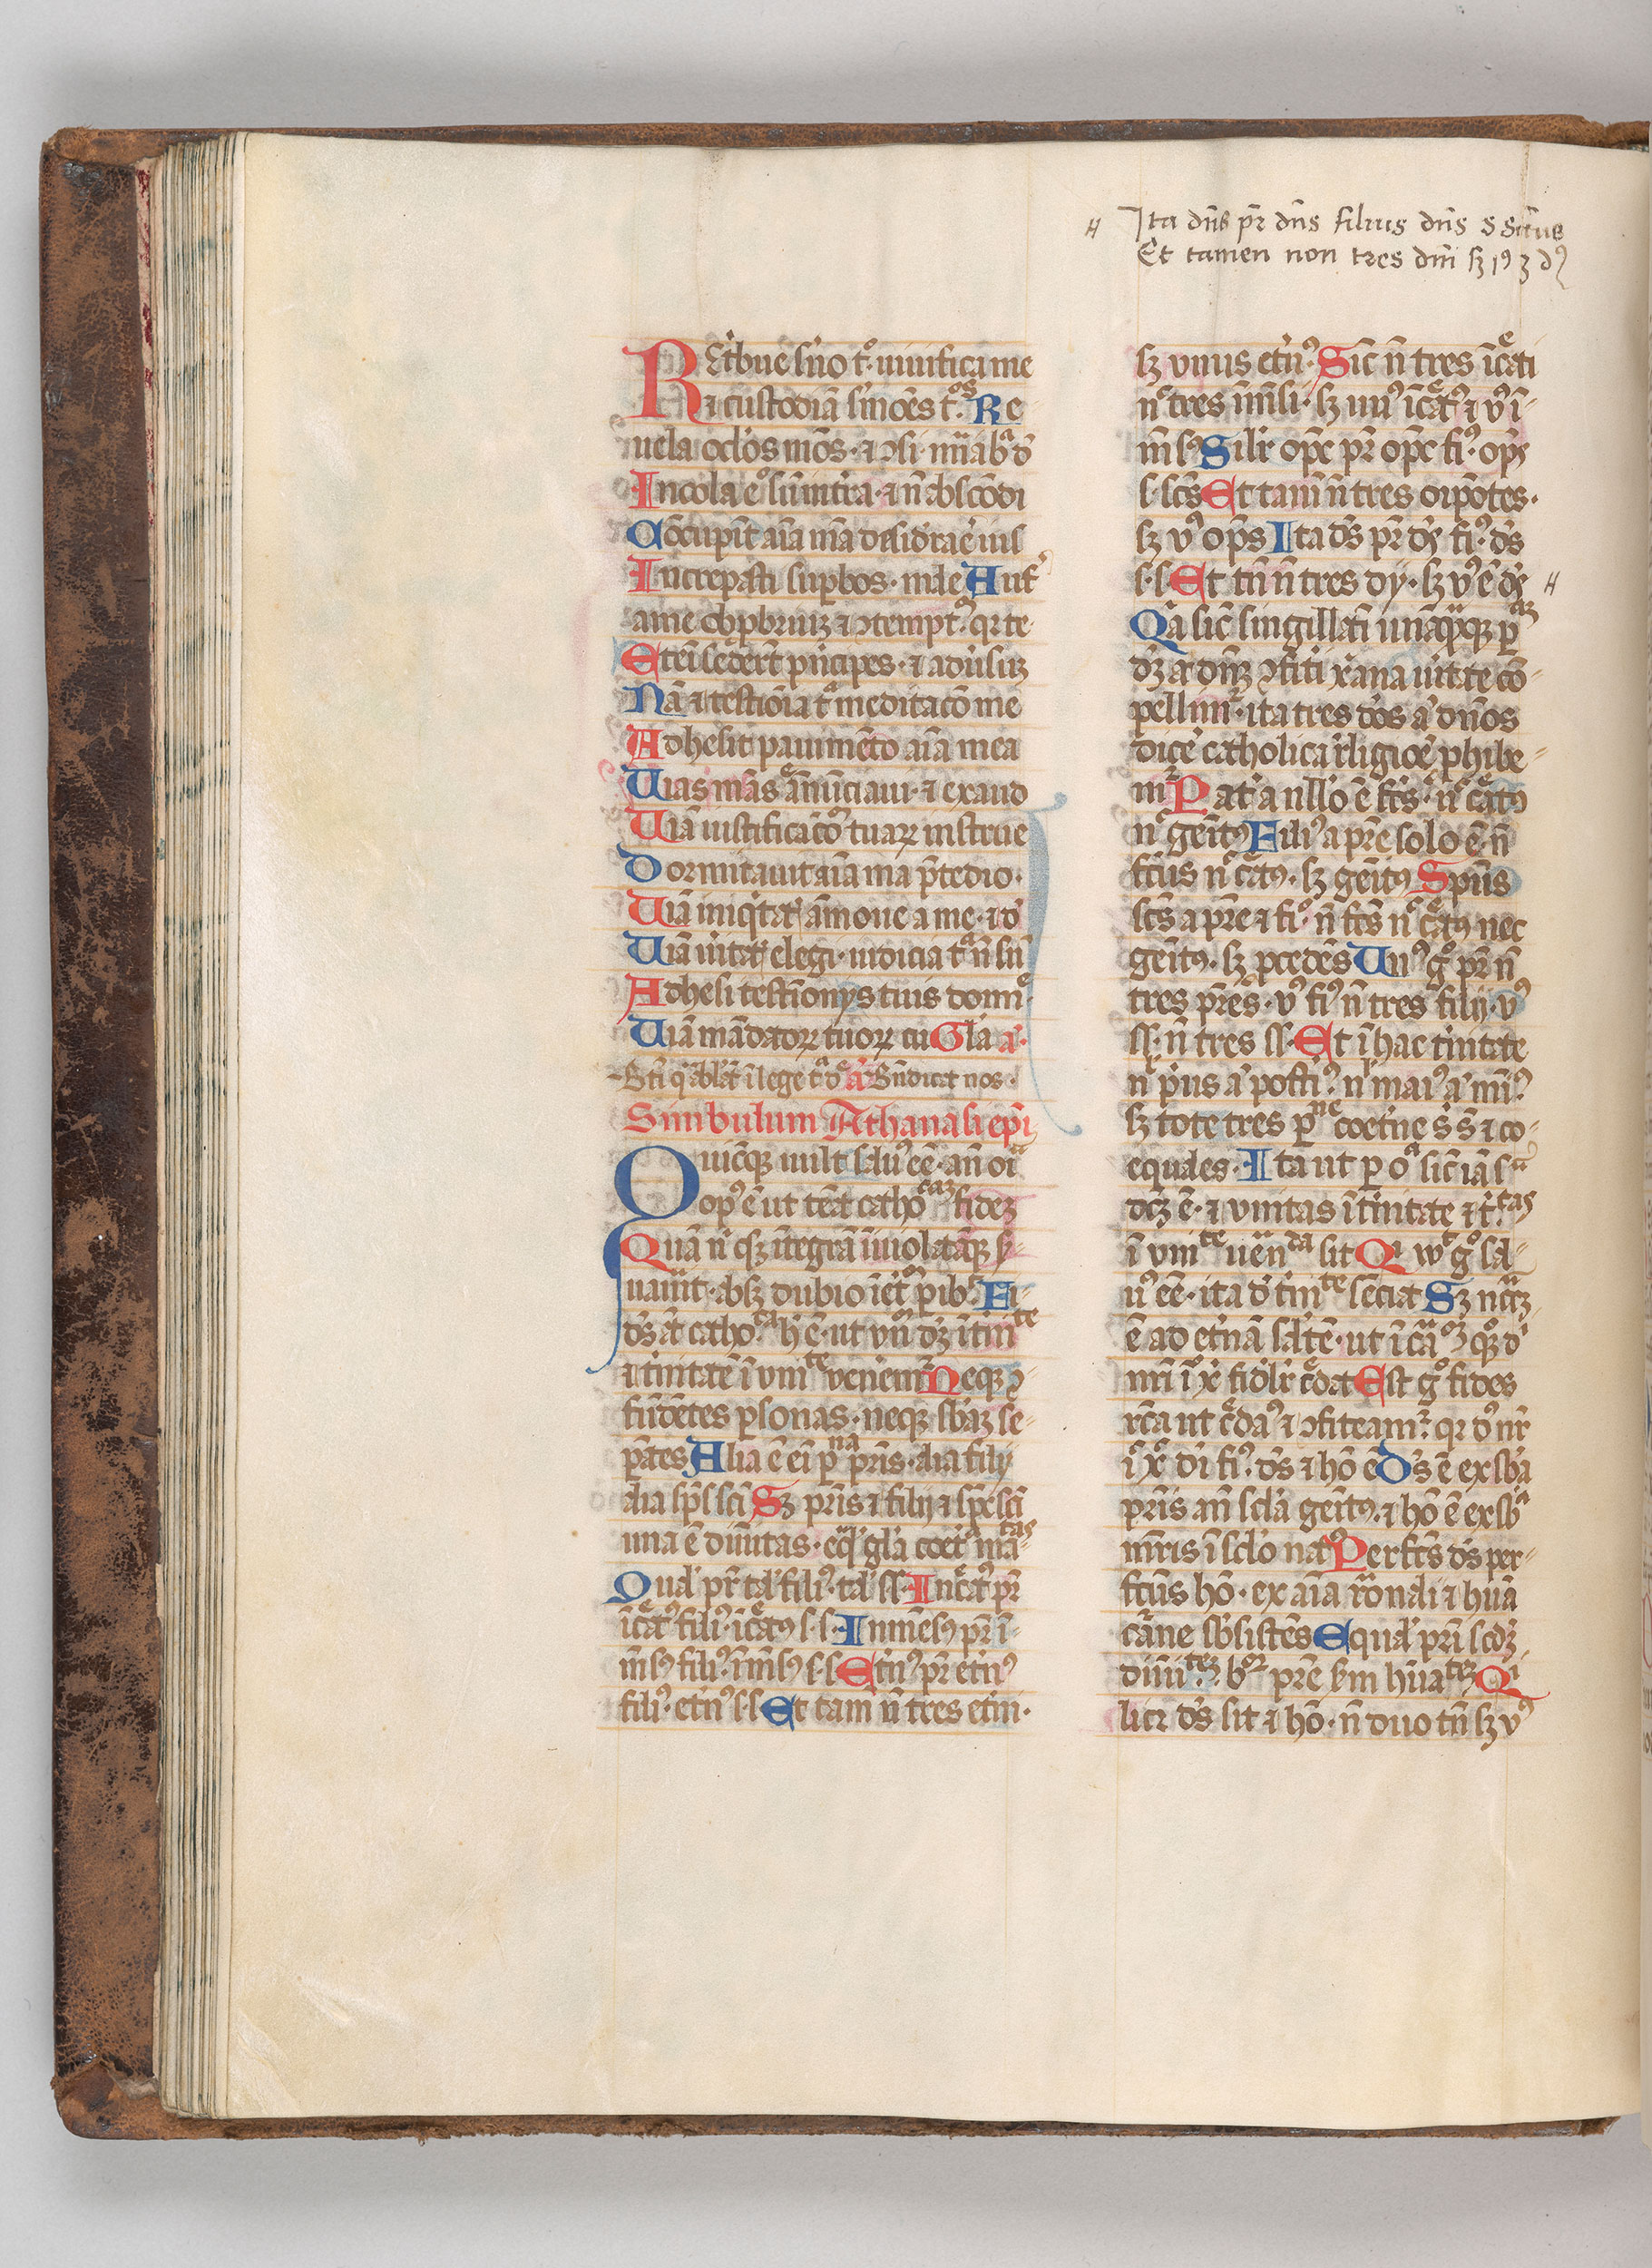 Ita dn̄s pr̄ dn̄s filius dn̄s s sāctus
Et tamen non tres dn̄i sꝫ
Retͥbue ẜuo tͦ· uiuifica me
⁊ custodiā ẜmōes tͦˢ· Re-
uela oclos mōs· ⁊ ꝯsi·
Incola eͦ sū in tr̄a· ⁊ n̄ abscōdi
Cōcupīt aīa m̄a desid̕rae
Increpasti suꝑbos· mͣle Auf̕
a me obꝓbriuꝫ ⁊ ꝯtempt̕· qr te
Eteī seder̄t pͥncipes· ⁊ adūsuꝫ
Nā ⁊ testiōia tͣ meditacō me
Adhesit pauimēto aīa mea
Uias mēas ānūciaui· ⁊ exaud
Uiā iustificacōͦ tuaꝝ instrue
Dormitauit aīa ma p̄ tedio·
Uiā iniqͥtatꝭ āmoue a me· ⁊ dͤ
Uiā uītatꝭ elegi· iudicia tͣ n̄ sū
Adhesi testīonijs tuis domͤ·
Uiā mādatoꝝ tuoꝝ cu Gl̄a a̕·
Simbulum Athanasi ep̄i
Quicūqꝫ uult sal̕u̕ eē· an̄ oīͣ
op̕ ē ut teāt cathoᶜᵃᵐ fideꝫ
Quā nͥ qͥsqꝫ ītegrā īuiolatāqꝫ ẜ-
uauīt· absqꝫ dubio ī et̕nͫ ꝑibͭ· Fi-
d̕s āt cathoᶜᵃ h̕ ē· ut vnū dꝫ ī tͥniᵗᵉ
⁊ tͥnitatē ī vniᵗᵉ venem̕ Neqꝫ ꝯ-
fūdētes ꝑsonas· neqꝫ sb̄az se-
ꝑātes Alia ē eī ꝑⁿᵃ pr̄is· alia filij
alia sp̄s scī Sꝫ pr̄is ⁊ filij ⁊ sp̄s scī
una ē diuītas· eql̕ gl̄a coet̕ maᵗᵃˢ
Qual̕ pr̄ tal̕ fili̕· tal̕ ss· Incͤat̕ pr̄
īcͤat̕ fili̕· īcͤat̕ s·s· Inmēs̕ pr̄ ī-
mēs̕ fili̕· īmēs̕ s·s Et̕n̕ pr̄ et̕n̕
fili̕· et̕n̕ s·s Et tam̄ n̄ tres et̕ni·
sꝫ vnus et̕n̕· Sic n̄ tres īcͤati
nͨ tres īmēsi· sꝫ un̕ īcͤat̕ ⁊ v̕ ī-
mēs̕ Silr̄ op̄s pr̄ op̄s fi̕· op̄s
s·sc̄s Et tam̄ n̄ tres oīpōtes·
sꝫ v̕ op̄s Ita d̕s pr̄ d̕s fi̕· d̕s
s·s· Et tn̄ n̄ tres dij· sꝫ v̕ ē d̕s
Qͥa sic̄ singillatī unāqͣqꝫ ꝑ
dꝫ a̕ dnꝫ ꝯfiti xͥana uitate cō-
pellim̕· ita tres d̕os a̕ dn̄os
dice̕ catholica rligiōe ꝓhibe-
m̕ Pat̕ a nllo ē fc̄s· nͨ cͤat̕
nͨ geīt̕ Fili̕ a pr̄e solo ē· n̄
fctus nͨ cͤat̕· sꝫ geīt̕ Spūs
sc̄s a pr̄e ⁊ fi̕· n̄ fc̄s nͨ cͤat̕ nec
geīt̕· sꝫ ꝓcedēs Un̕ gͦ pr̄ n̄
tres pr̄es· v̕ fi̕ n̄ tres filij· v̕
ss· n̄ tres ss· Et ī hac tͥnitate
nͥ pͥus a̕ posti̕· nͥ mai̕ a̕ mī̕
sꝫ tote tres ꝑⁿᵉ coet̕ne s̄s̄ ⁊ co-
equales· Ita ut ꝑ oͣ sic̄ iā sͣ
dcꝫ ē· ⁊ vnitas ī tͥnitate ⁊ tͥᵗᵃˢ
ī vniᵗᵉ uēnᵈᵃ sit Qͥ vlt̕ gͦ sal-
u̕ eē· ita d̕ tͥniᵗᵉ sēciat Sꝫ nccͣꝫ
ē ad et̕nā saltē· ut īcar̄oꝫ qͦqꝫ d̄
nri īͧ xͥ fidelr̄ cͤdat Est gͦ fides
rc̄a ut cͤda̕ ⁊ ꝯfiteam̕· qr d̕ nr̄
iͨ xͨ di fi̕· d̕s ⁊ hō ē D̕s ē ex sb̄a
pr̄is an̄ scl̄a geīt̕· ⁊ hō ē ex sb̄ͣ
mr̄is ī scl̄o nat̕ Perfc̄s d̕s per-
fctus hō· ex aīa rōnali ⁊ hūa
carne sbsistēs Equal̕ pr̄i scdꝫ
diuiᵗᵉᵐ· pr̄e scd̄m hūaᵗᵉᵐ Qͥ
licꝫ d̕s sit ⁊ hō· n̄ duo tn̄ sꝫ v̕